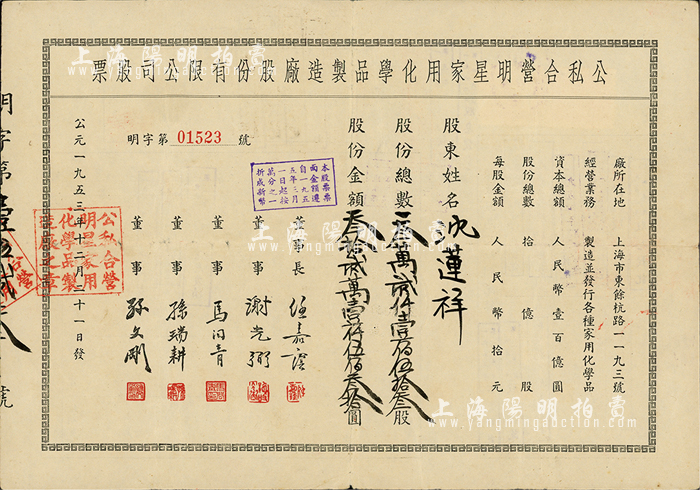 公私合營明星家用化學品製造廠股份有限公司股票
廠所在地 上海市東餘杭路一一九三號
經營業務 製造並發行各種家用化學品
資本總額 人民幣壹百億圓
股份總數 拾億股
每股金額 人民幣拾元
股東姓名 沈蓮祥
股份總數 萬貳仟壹佰伍拾叁股
股份金額 貳萬壹仟伍佰叁拾圓
明字第 01523 號
本股票票
面金額遵
自一九五
五年三月
一日起按
萬分之一
折成新幣
董事長 任嘉
董事 謝光弼
董事 馬
董事 孫瑞耕
董事 孫文剛
公元一九五三年十二月二十一日發
公私合營
明星家用
化學品製
造廠
明字第 號
上海陽明拍賣
www.yangmingauction.com
上海陽明拍賣
www.yangmingauction.com